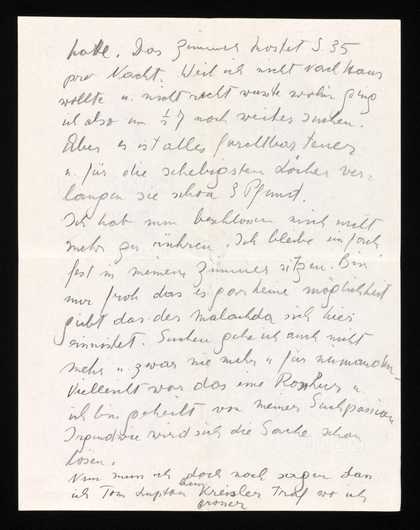 hatte. Das Zimmer kostet S 35
pro Nacht. Weil ich nicht nach Haus
wollte u. nicht recht wusste wohin ging
ich also um ½ 7 noch weiter suchen.
Aber es ist alles furchtbar teuer
u. für die schebigsten Löcher ver-
langen sie schon 3 Pfund.
Ich hab nun beschlossen mich nicht
mehr zu rühren. Ich bleibe einfach
fest in meinem Zimmer sitzen. Bin
nur froh das es gar keine möglichkeit
gibt das der sich hier
einnistet. Suchen gehe ich auch nicht
mehr u zwar nie mehr u für niemanden
Vielleicht war das eine u
ich bin geheilt von meiner Suchpassion
Irgendwie wird sich die Sache schon
lösen.
Nun muss ich doch noch sagen dan
ich Tom den Kreisler Traf wo ich